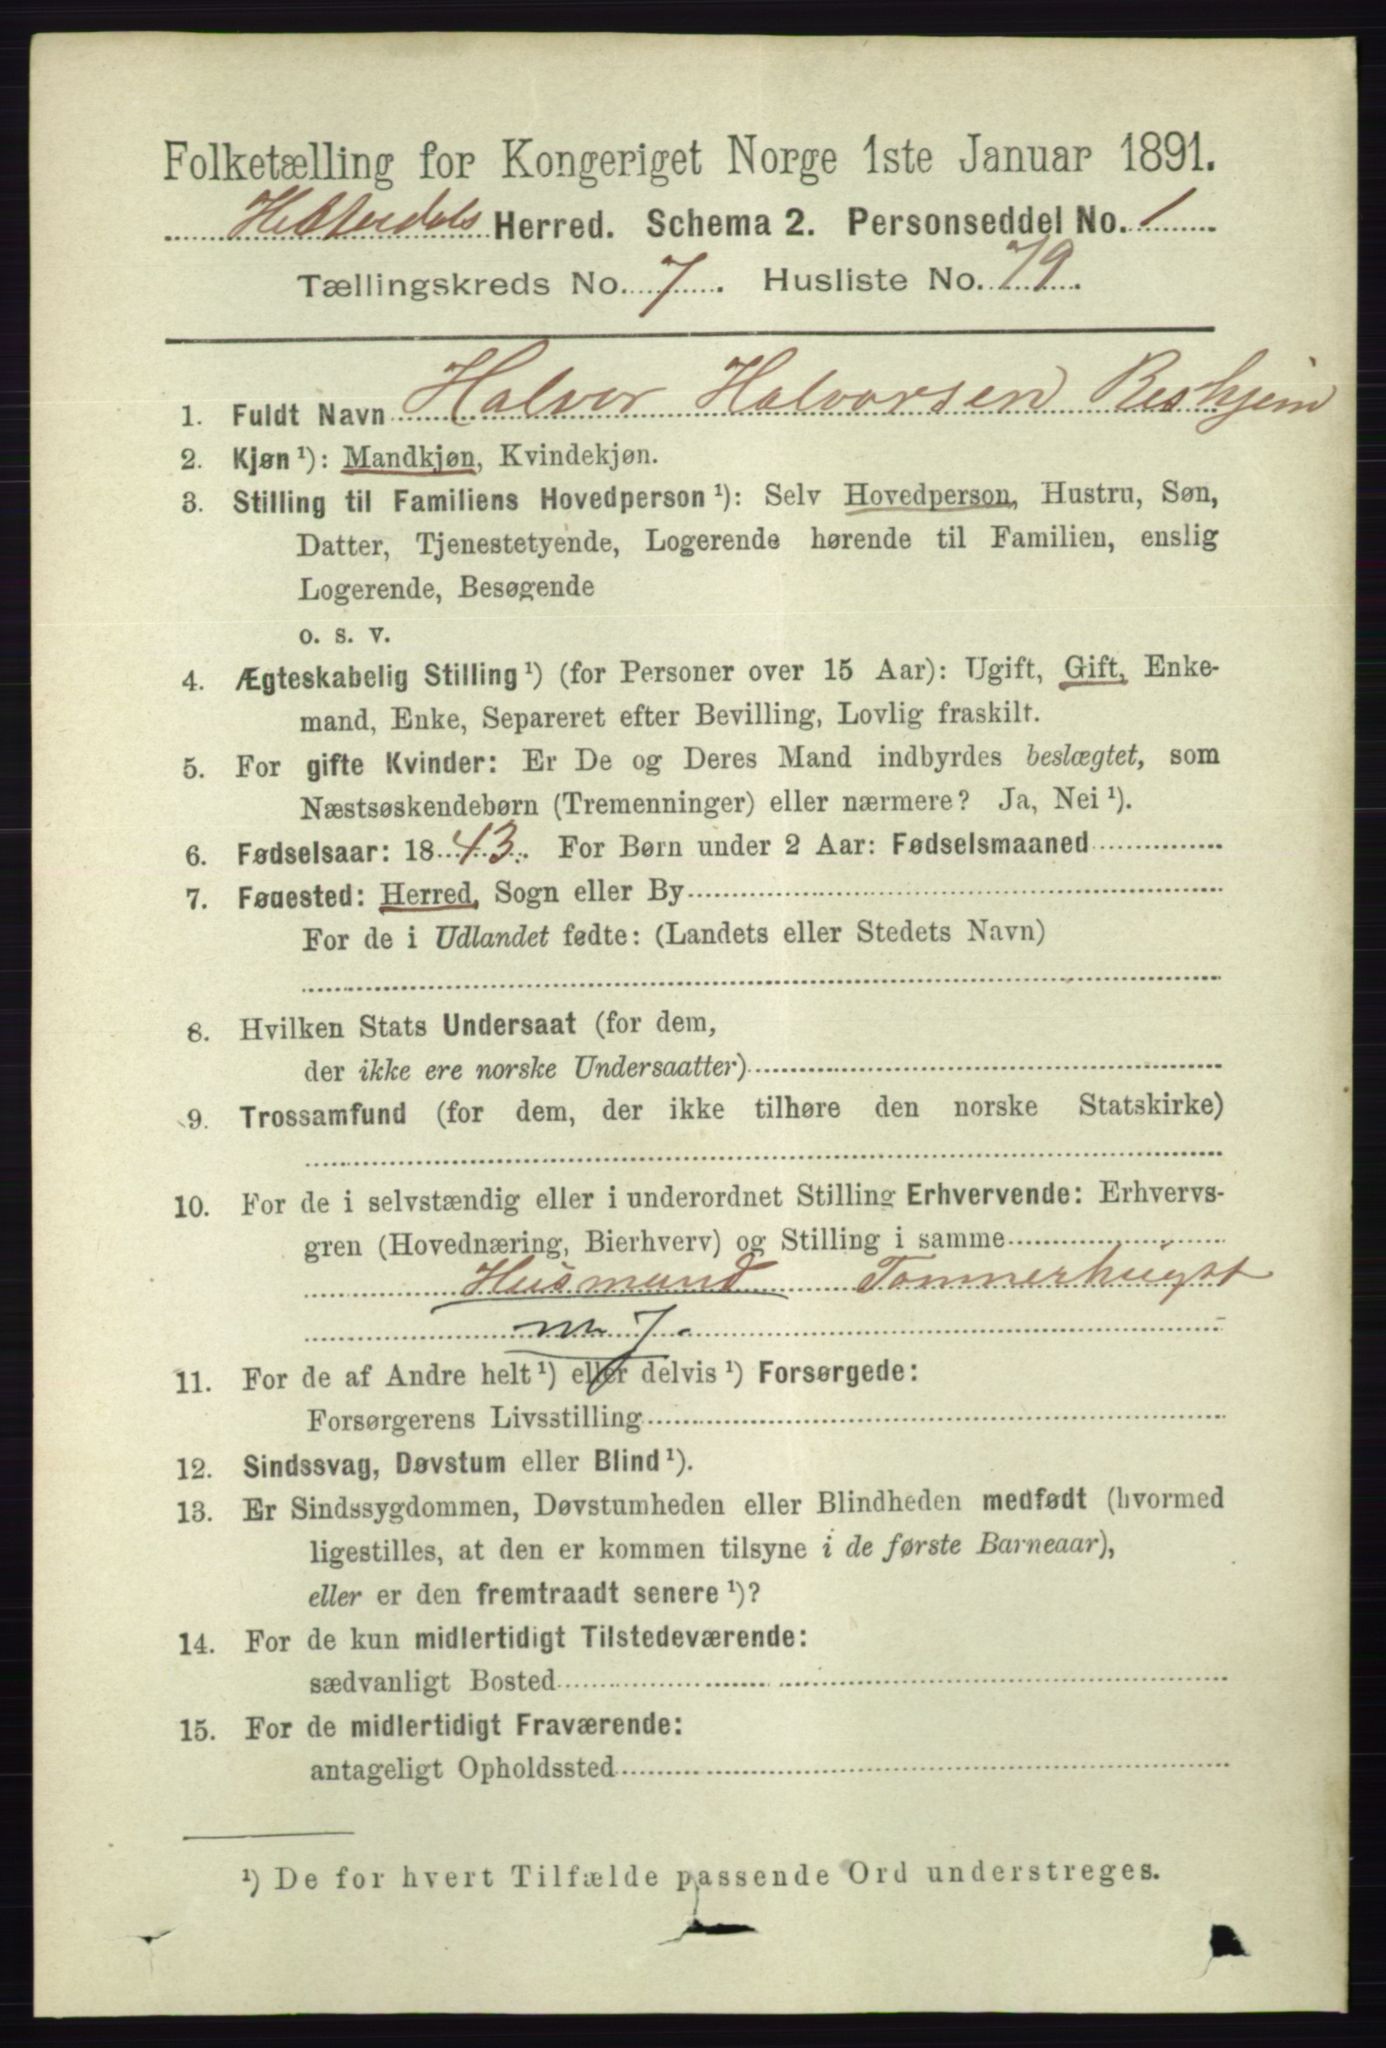 Folketælling for Kongeriget Norge 1ste Januar 1891.
Hitterdals Herred. Schema 2. Personseddel No. 1
Tællingskreds No. 7. Husliste No. 79.
1. Fuldt Navn Halvor Halvorsen Reskjem
2. Kjøn ¹): Mandkjøn, Kvindekjøn.
3. Stilling til Familiens Hovedperson ¹): Selv Hovedperson, Hustru, Søn,
Datter, Tjenestetyende, Logerende hørende til Familien, enslig
Logerende, Besøgende
o. s. v.
4. Ægteskabelig Stilling ¹) (for Personer over 15 Aar): Ugift, Gift, Enke-
mand, Enke, Separeret efter Bevilling, Lovlig fraskilt.
5. For gifte Kvinder: Er De og Deres Mand indbyrdes beslægtet, som
Næstsøskendebørn (Tremenninger) eller nærmere? Ja, Nei ¹).
6. Fødselsaar: 1843. For Børn under 2 Aar: Fødselsmaaned
7. Føuested: Herred, Sogn eller By
For de i Udlandet fødte: (Landets eller Stedets Navn)
8. Hvilken Stats Undersaat (for dem,
der ikke ere norske Undersaatter)
9. Trossamfund (for dem, der ikke tilhøre den norske Statskirke)
10. For de i selvstændig eller i underordnet Stilling Erhvervende: Erhvervs-
gren (Hovednæring, Bierhverv) og Stilling i samme
Husmand Tømmerhugst
m 7.
11. For de af Andre helt ¹) eller delvis ¹) Forsørgede:
Forsørgerens Livsstilling
12. Sindssvag, Døvstum eller Blind ¹).
13. Er Sindssygdommen, Døvstumheden eller Blindheden medfødt (hvormed
ligestilles, at den er kommen tilsyne i de første Barneaar),
eller er den fremtraadt senere ¹)?
14. For de kun midlertidigt Tilstedeværende:
sædvanligt Bosted
15. For de midlertidigt Fraværende:
antageligt Opholdssted
¹) De for hvert Tilfælde passende Ord understreges.